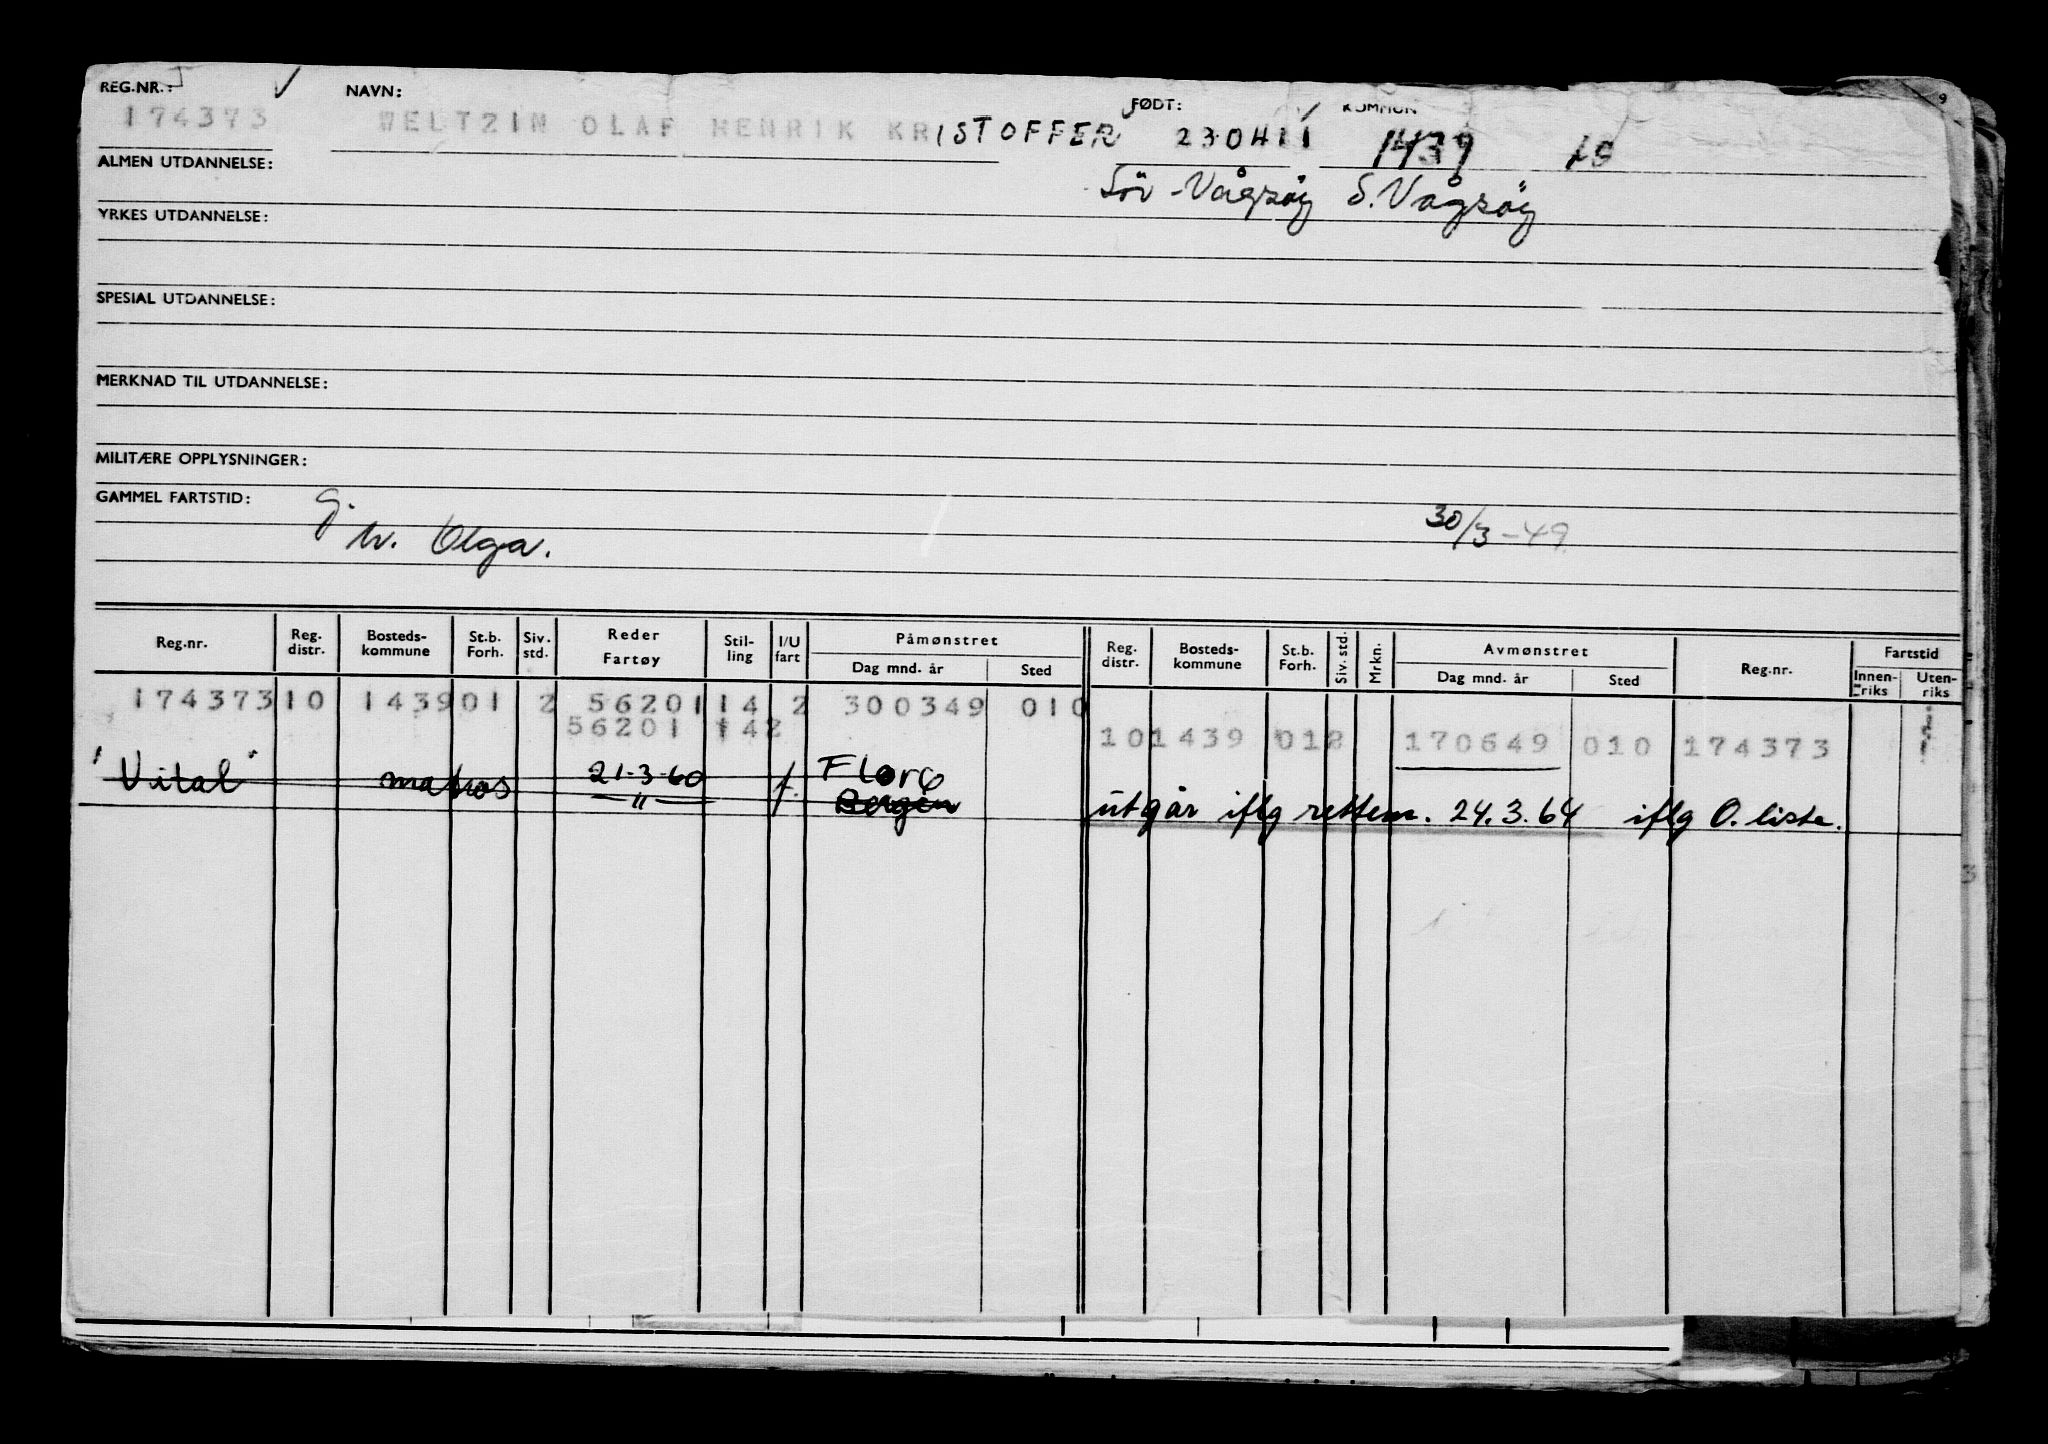 REG.NR.: NAVN: FØDT: KOMMUN
174373 WELTZIN OLAF HENRIK KRISTOFFER 230411 1439
ALMEN UTDANNELSE: Sör-Vågsöy S. Vågsöy
YRKES UTDANNELSE:
SPESIAL UTDANNELSE:
MERKNAD TIL UTDANNELSE:
MILITÆRE OPPLYSNINGER:
GAMMEL FARTSTID:
Gj. h. Olga. 30/3-49
Reg.nr. Reg. distr. Bosteds-kommune St.b. Forh. Siv. std. Reder Fartøy Stil-ling I/U fart Påmønstret Dag mnd. år Sted Reg. distr. Bosteds-kommune St.b. Forh. Siv. std. Mrkn. Avmønstret Dag mnd. år Sted Reg.nr. Fartstid Innen-riks Uten-riks
174373 10 1439 01 2 56201 14 2 300349 010
56201 142 10 1439 012 170649 010 174373
"Vital" matros 21-3-60 f. Florø
" Bergen utgår iflg rettem. 24.3.64 iflg O. liste.